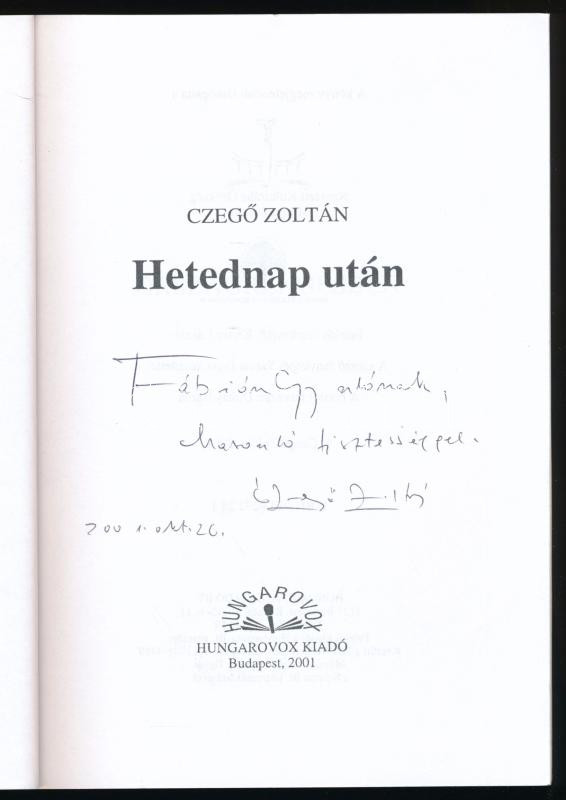 CZEGŐ ZOLTÁN
Hetednap után
Fábián Gy
tisztességgel.
Czegő Zoltán
2001. okt. 26.
HUNGAROVOX
HUNGAROVOX KIADÓ
Budapest, 2001